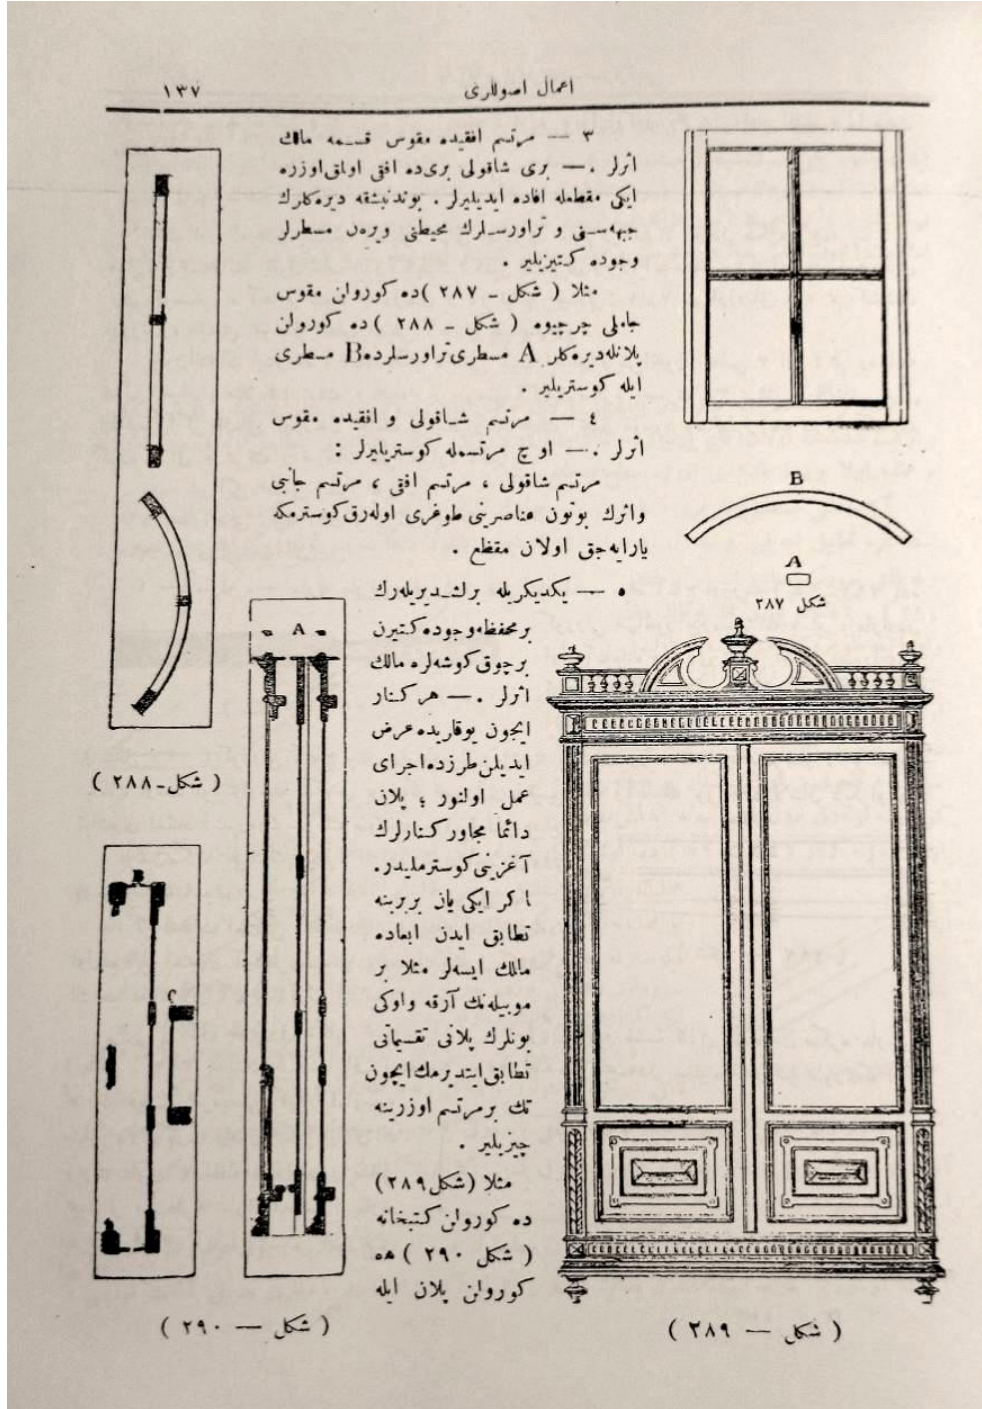 اعمال اصوللری
١٣٧
٣ — مرتسم افقیده مقوس قسمه مالك
اثرلر .— بری شاقولی بری‌ده افقی اولمق اوزره
ایکی مقطعله افاده ایدیلیرلر . بوندنبشقه دیره‌کلرك
جبهه‌سنی و تراورسلرك محیطنی ویره‌ن مسطرلر
وجوده کتیریلیر .
مثلا ( شکل ـ ٢٨٧ )ده کورولن مقوس
جاملی چرچیوه ( شکل ـ ٢٨٨ )ده کورولن
پلانله دیره‌کلر A مسطری تراورسلرده B مسطری
ایله کوستریلیر .
٤ — مرتسم شاقولی و افقیده مقوس
اثرلر .— اوچ مرتسمله کوستریلیرلر :
مرتسم شاقولی ، مرتسم افقی ، مرتسم جانبی
واثرك بوتون عناصرینی طوغری اوله‌رق کوسترمکه
یارایه‌جق اولان مقطع .
٥ — یکدیکریله برلشدیریله‌رك
بر محفظه وجوده کتیرن
برچوق کوشه‌لره مالك
اثرلر .— هر کنار
ایچون یوقاریده عرض
ایدیلن طرزده اجرای
عمل اولنور ؛ پلان
دائما مجاور کنارلرك
آغزینی کوسترملیدر.
اکر ایکی یان بربرینه
تطابق ایدن ابعاده
مالك ایسه‌لر مثلا بر
موبیله‌نك آرقه واوکی
بونلرك پلانی تقسیماتی
تطابق ایتدیرمك ایچون
تك برمرتسم اوزرینه
چیزیلیر .
مثلا (شکل ٢٨٩)
ده کورولن کتبخانه
( شکل ٢٩٠ )ده
کورولن پلان ایله
B
A
شکل ٢٨٧
( شکل ـ ٢٨٨ )
A
B
( شکل — ٢٨٩ )
( شکل — ٢٩٠ )